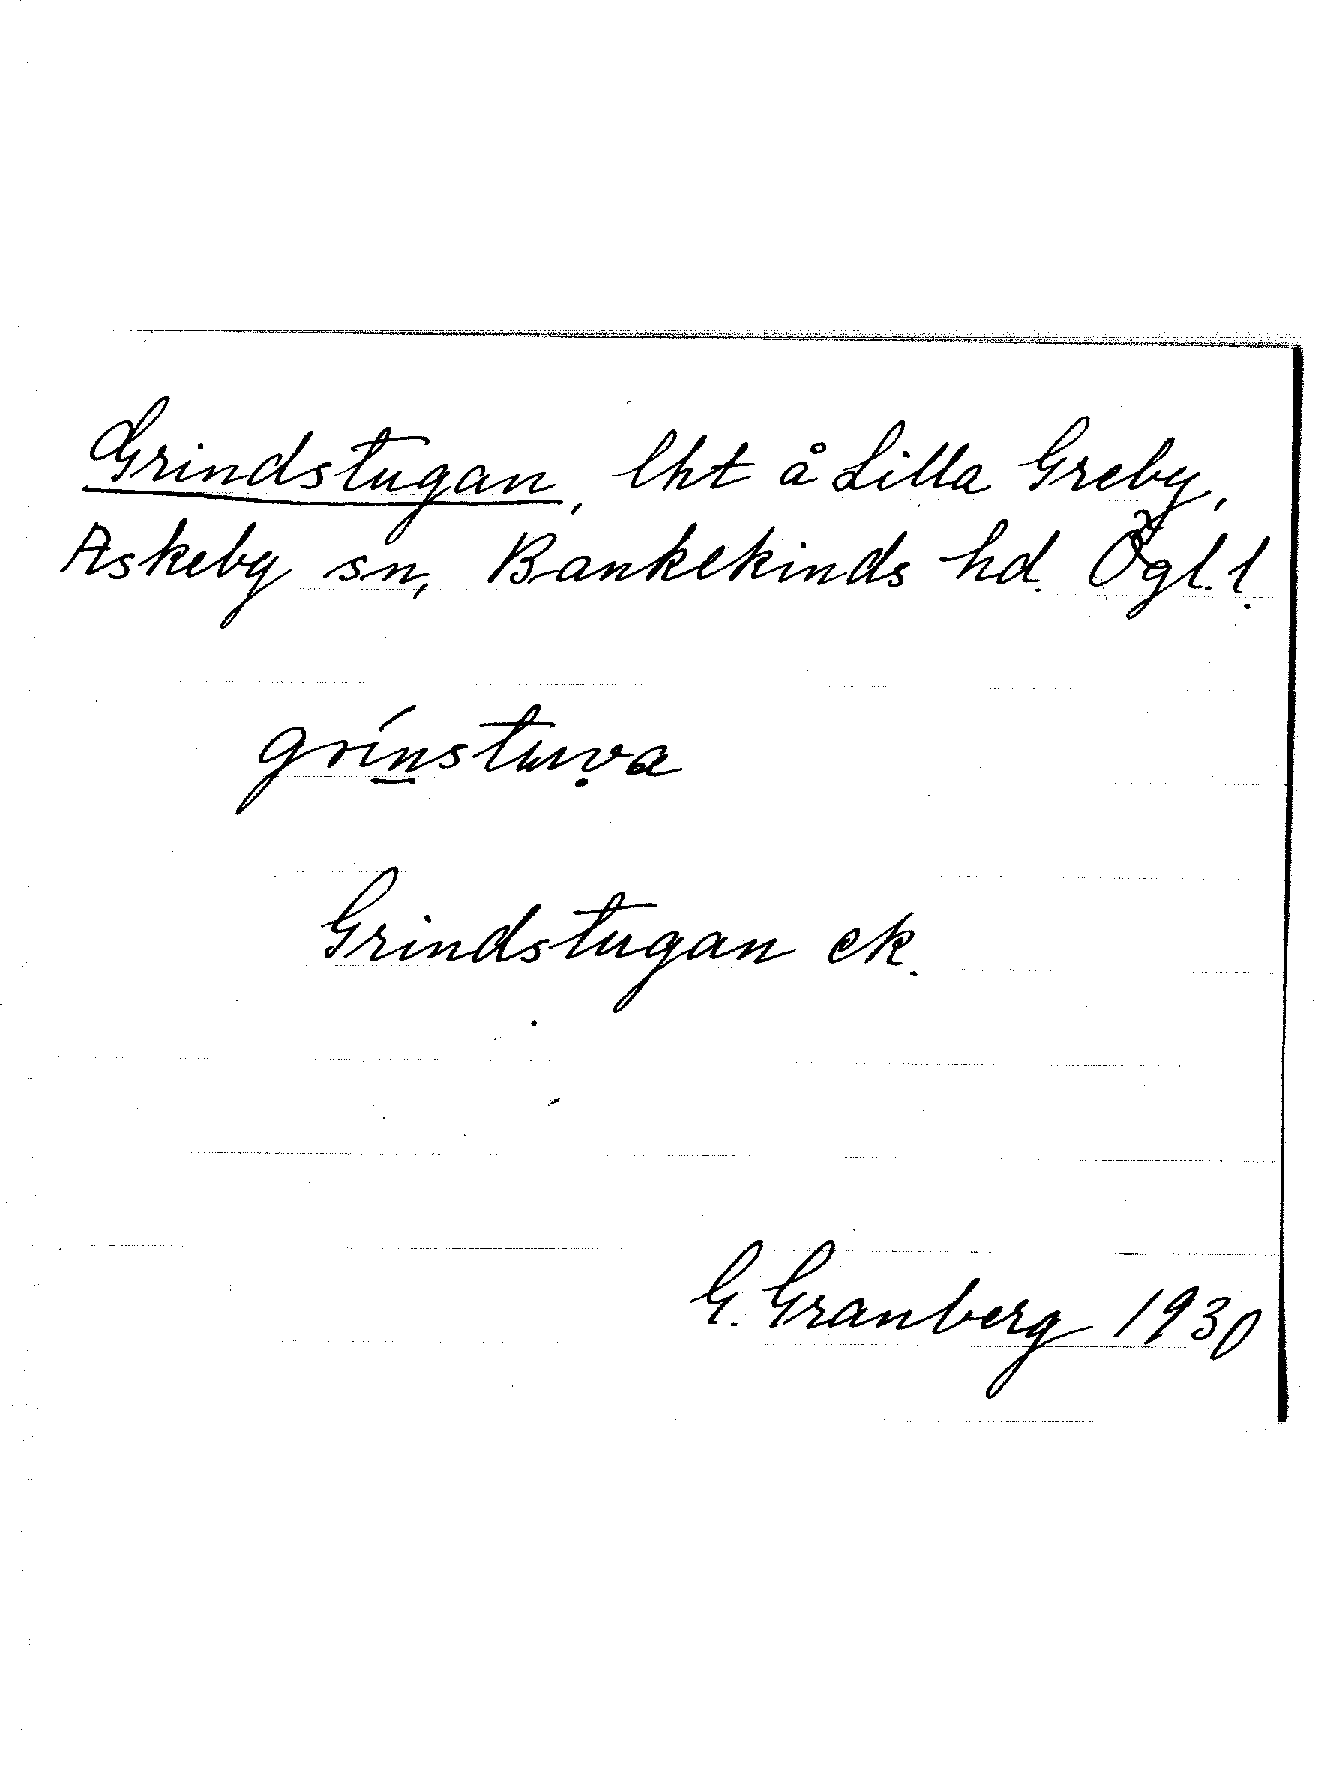 Grindstugan, lht å Lilla Greby,
Askeby sn, Bankekinds hd. Ögl. l.
grínstuva
Grindstugan ek.
G. Granberg 1930